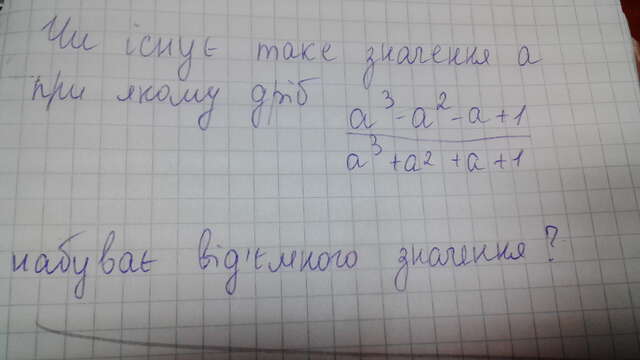 Чи існує таке значення a
при якому дріб
a³-a²-a+1
a³+a²+a+1
набуває від'ємного значення?